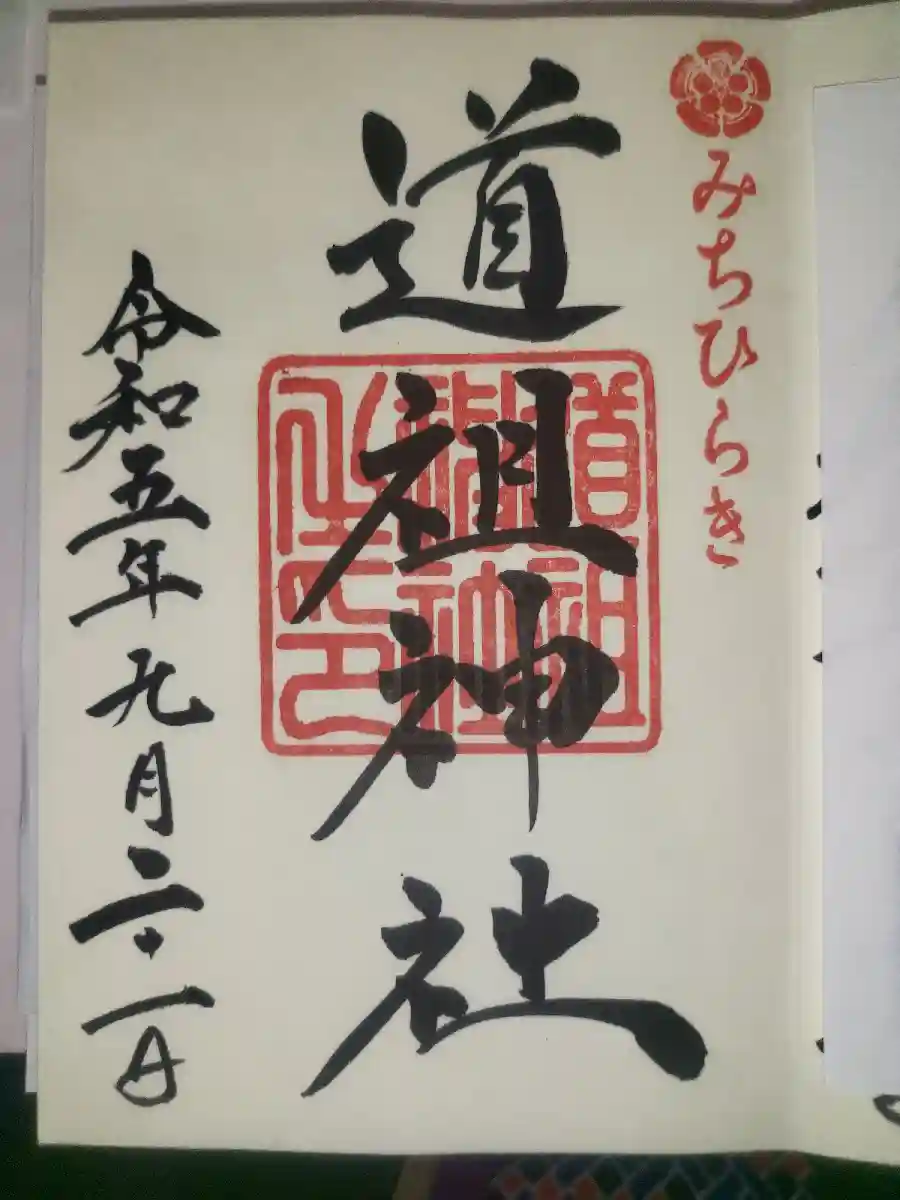 みちひらき
道祖神社
道祖神社之印
令和五年九月二十一日